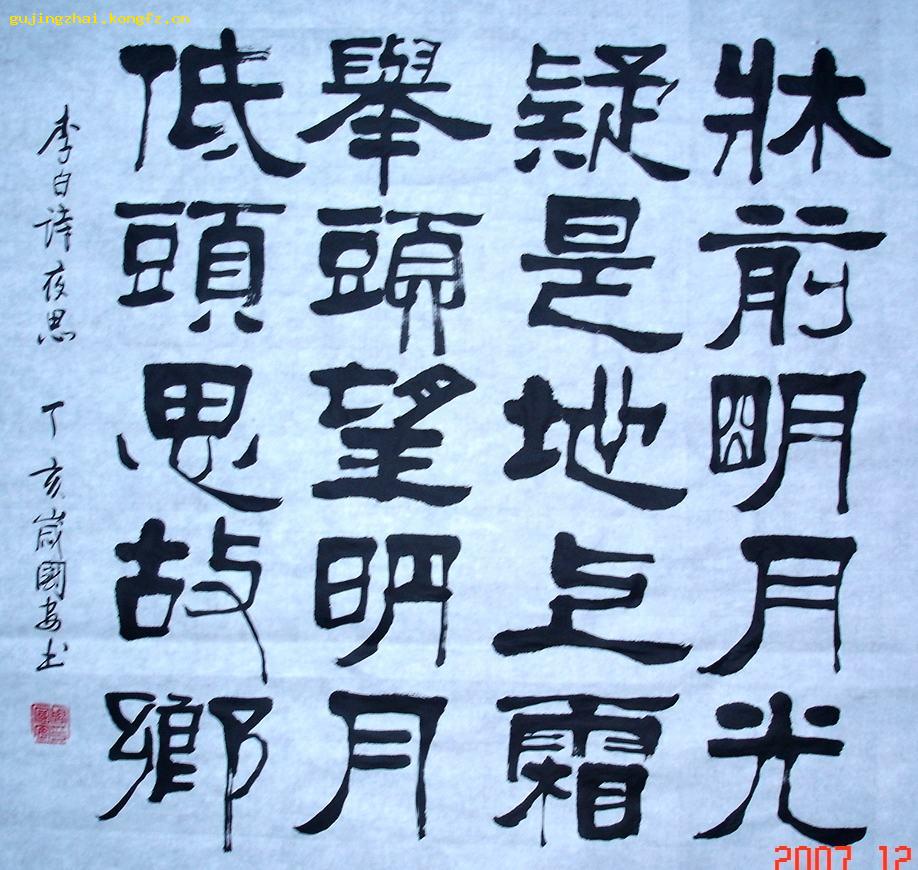 牀前明月光
疑是地上霜
舉頭望明月
低頭思故鄉
李白詩夜思 丁亥歲國安书
gujingzhai.kongfz.cn
2007 12